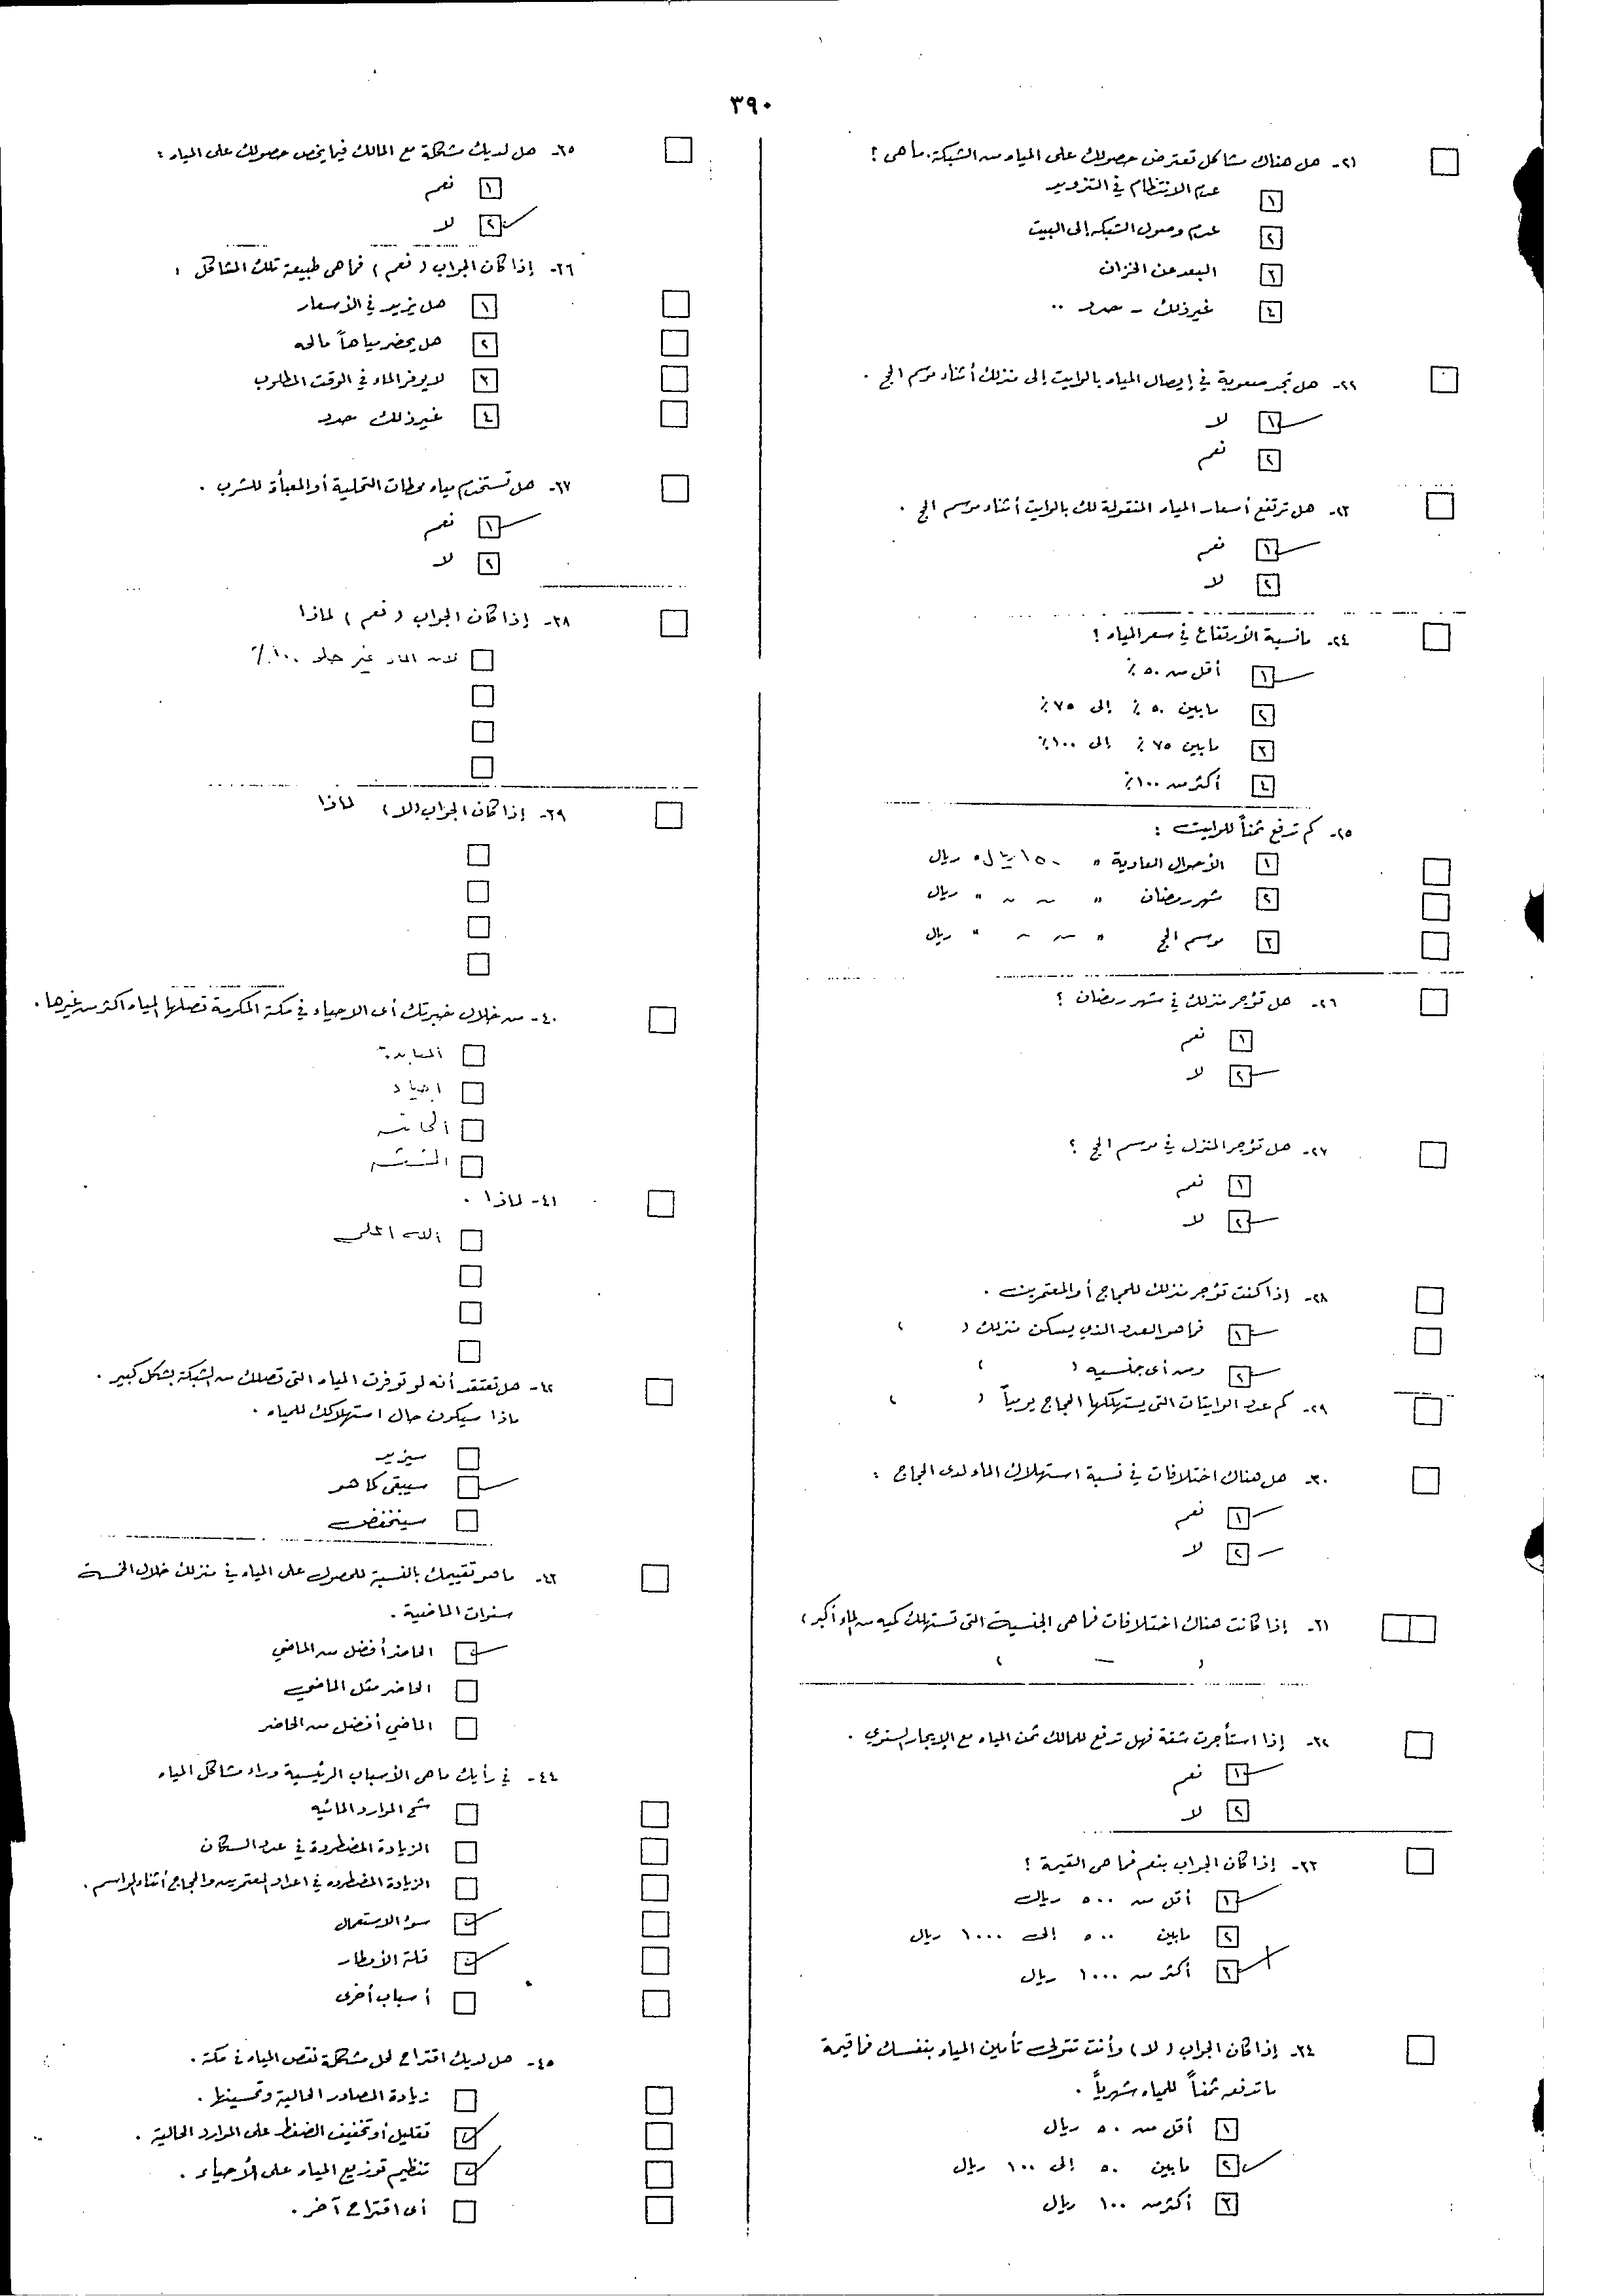 ٣٩٠
٢١- هل هناك مشاكل تعترض حصولك على المياه من الشبكة. ما هى ؟
١ عدم الانتظام في التزويد
٢ عدم وصول الشبكه إلى البيت
٣ البعد عن الخزان
٤ غير ذلك - حدد ..
٢٢- هل تجد صعوبة في إيصال المياه بالوايت إلى منزلك أثناء موسم الحج .
١ لا
٢ نعم
٢٣- هل ترتفع أسعار المياه المنقولة لك بالوايت أثناء موسم الحج .
١ نعم
٢ لا
٢٤- مانسبة الأرتفاع في سعر المياه ؟
١ أقل من ٥٠ ٪
٢ مابين ٥٠ ٪ إلى ٧٥ ٪
٣ مابين ٧٥ ٪ إلى ١٠٠ ٪
٤ أكثر من ١٠٠ ٪
٢٥- كم تدفع ثمناً للوايت :
١ الأحوال العادية " ١٥٠ ريال " ريال
٢ شهر رمضان " ~ ~ " ريال
٣ موسم الحج " ~ ~ " ريال
٢٦- هل تؤجر منزلك في شهر رمضان ؟
١ نعم
٢ لا
٢٧- هل تؤجر المنزل في موسم الحج ؟
١ نعم
٢ لا
٢٨- إذا كنت تؤجر منزلك للحجاج أو المعتمرين .
١ فما هو العدد الذي يسكن منزلك ( )
٢ ومن أى جنسيه ( )
٢٩- كم عدد الوايتات التى يستهلكها الحجاج يومياً ( )
٣٠- هل هناك اختلافات في نسبة استهلاك الماء لدى الحجاج :
١ نعم
٢ لا
٣١- إذا كانت هناك اختلافات فما هى الجنسية التى تستهلك كميه من الماء أكبر ،
( - )
٣٢- إذا استأجرت شقة فهل تدفع للمالك ثمن المياه مع الإيجار السنوي .
١ نعم
٢ لا
٣٣- إذا كان الجواب بنعم فما هى القيمة ؟
١ أقل من ٥٠٠ ريال
٢ مابين ٥٠٠ إلى ١٠٠٠ ريال
٣ أكثر من ١٠٠٠ ريال
٣٤- إذا كان الجواب ( لا ) وأنت تتولى تأمين المياه بنفسك فما قيمة
ماتدفعه ثمناً للمياه شهرياً .
١ أقل من ٥٠ ريال
٢ مابين ٥٠ إلى ١٠٠ ريال
٣ أكثر من ١٠٠ ريال
٣٥- هل لديك مشكلة مع المالك فيما يخص حصولك على المياه :
١ نعم
٢ لا
٣٦- إذا كان الجواب ( نعم ) فما هى طبيعة تلك المشاكل :
١ هل يزيد في الأسعار
٢ هل يحضر مياهاً مالحه
٣ لا يوفر الماء في الوقت المطلوب
٤ غير ذلك حدد
٣٧- هل تستخدم مياه محطات التحلية أو المعبأة للشرب .
١ نعم
٢ لا
٣٨- إذا كان الجواب ( نعم ) لماذا
لان الماء غير حلو ١٠٠٪
٣٩- إذا كان الجواب ( لا ) لماذا
٤٠- من خلال خبرتك أى الاحياء في مكة المكرمة تصلها المياه اكثر من غيرها .
المعابدة
اجياد
٤١- لماذا .
٤٢- هل تعتقد أنه لو توفرت المياه التى تصلك من الشبكة بشكل كبير .
ماذا سيكون حال استهلاكك للمياه .
سيزيد
سيبقى كما هو
سينخفض
٤٣- ماهو تقييمك بالنسبة للحصول على المياه في منزلك خلال الخمسة
سنوات الماضية .
الحاضر أفضل من الماضي
الحاضر مثل الماضي
الماضي أفضل من الحاضر
٤٤- في رأيك ماهى الأسباب الرئيسية وراء مشاكل المياه
شح الموارد المائيه
الزيادة المضطردة في عدد السكان
الزيادة المضطرده في اعداد المعتمرين والحجاج أثناء المواسم .
سوء الاستعمال
قلة الأمطار
أسباب أخرى
٤٥- هل لديك اقتراح لحل مشكلة نقص المياه في مكة .
زيادة المصادر الحالية وتحسينها .
تقليل أو تخفيف الضغط على الموارد الحالية .
تنظيم توزيع المياه على الأحياء .
أى اقتراح آخر .